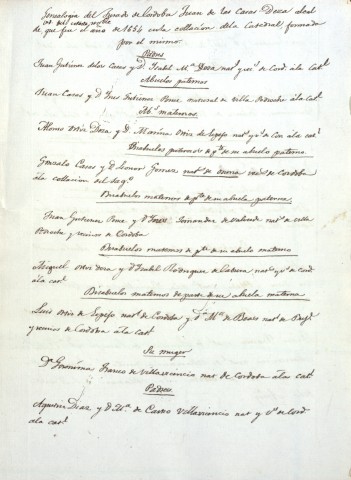 Genealogia del Jurado de Cordoba Juan de las Casas Deza
de que fue el año de 1654 en la collacion de la Catedral formada
por el mismo.
Padres
Juan Gutierrez de las Casas y Dª Isabel Mª Deza natˢ y vˢ de Cord. a la Catˡ
Abuelos paternos
Juan Casas y Dª Ines Gutierrez natural de villa a la Catˡ
Abˢ maternos
Alonso Ortiz Deza y Dª Marina Ortiz de Sepepo natˢ y vˢ de Cor. a la catˡ
Bisabuelos paternos de pᵗᵉ de su abuelo paterno
Gonzalo Casas y Dª Leonor Gomez natˢ de y vecˢ de Cordoba
a la collacion del
Bisabuelos maternos de pᵗᵉ de su abuela paterna
Juan Gutierrez y Dª Ines Fernandez de Valverde natˢ de villa
y vecinos de Cordoba
Bisabuelos maternos de pᵗᵉ de su abuelo materno
Ezequiel Ortiz Deza y Dª Isabel Rodriguez de natˢ y vˢ de Cord.
a la catˡ
Bisabuelos maternos de parte de su abuela materna
Luis Ortiz de Sepepo natˢ de Cordoba y Dª Mª de natˢ de
y vecinos de Cordoba a la Catˡ
Su muger
Dª Geronima Franco de Villavicencio nat de Cordoba a la catˡ
Padres
Agustin Diaz y Dª Mª de Castro Villavicencio nat y vˢ de Cord
a la catˡ